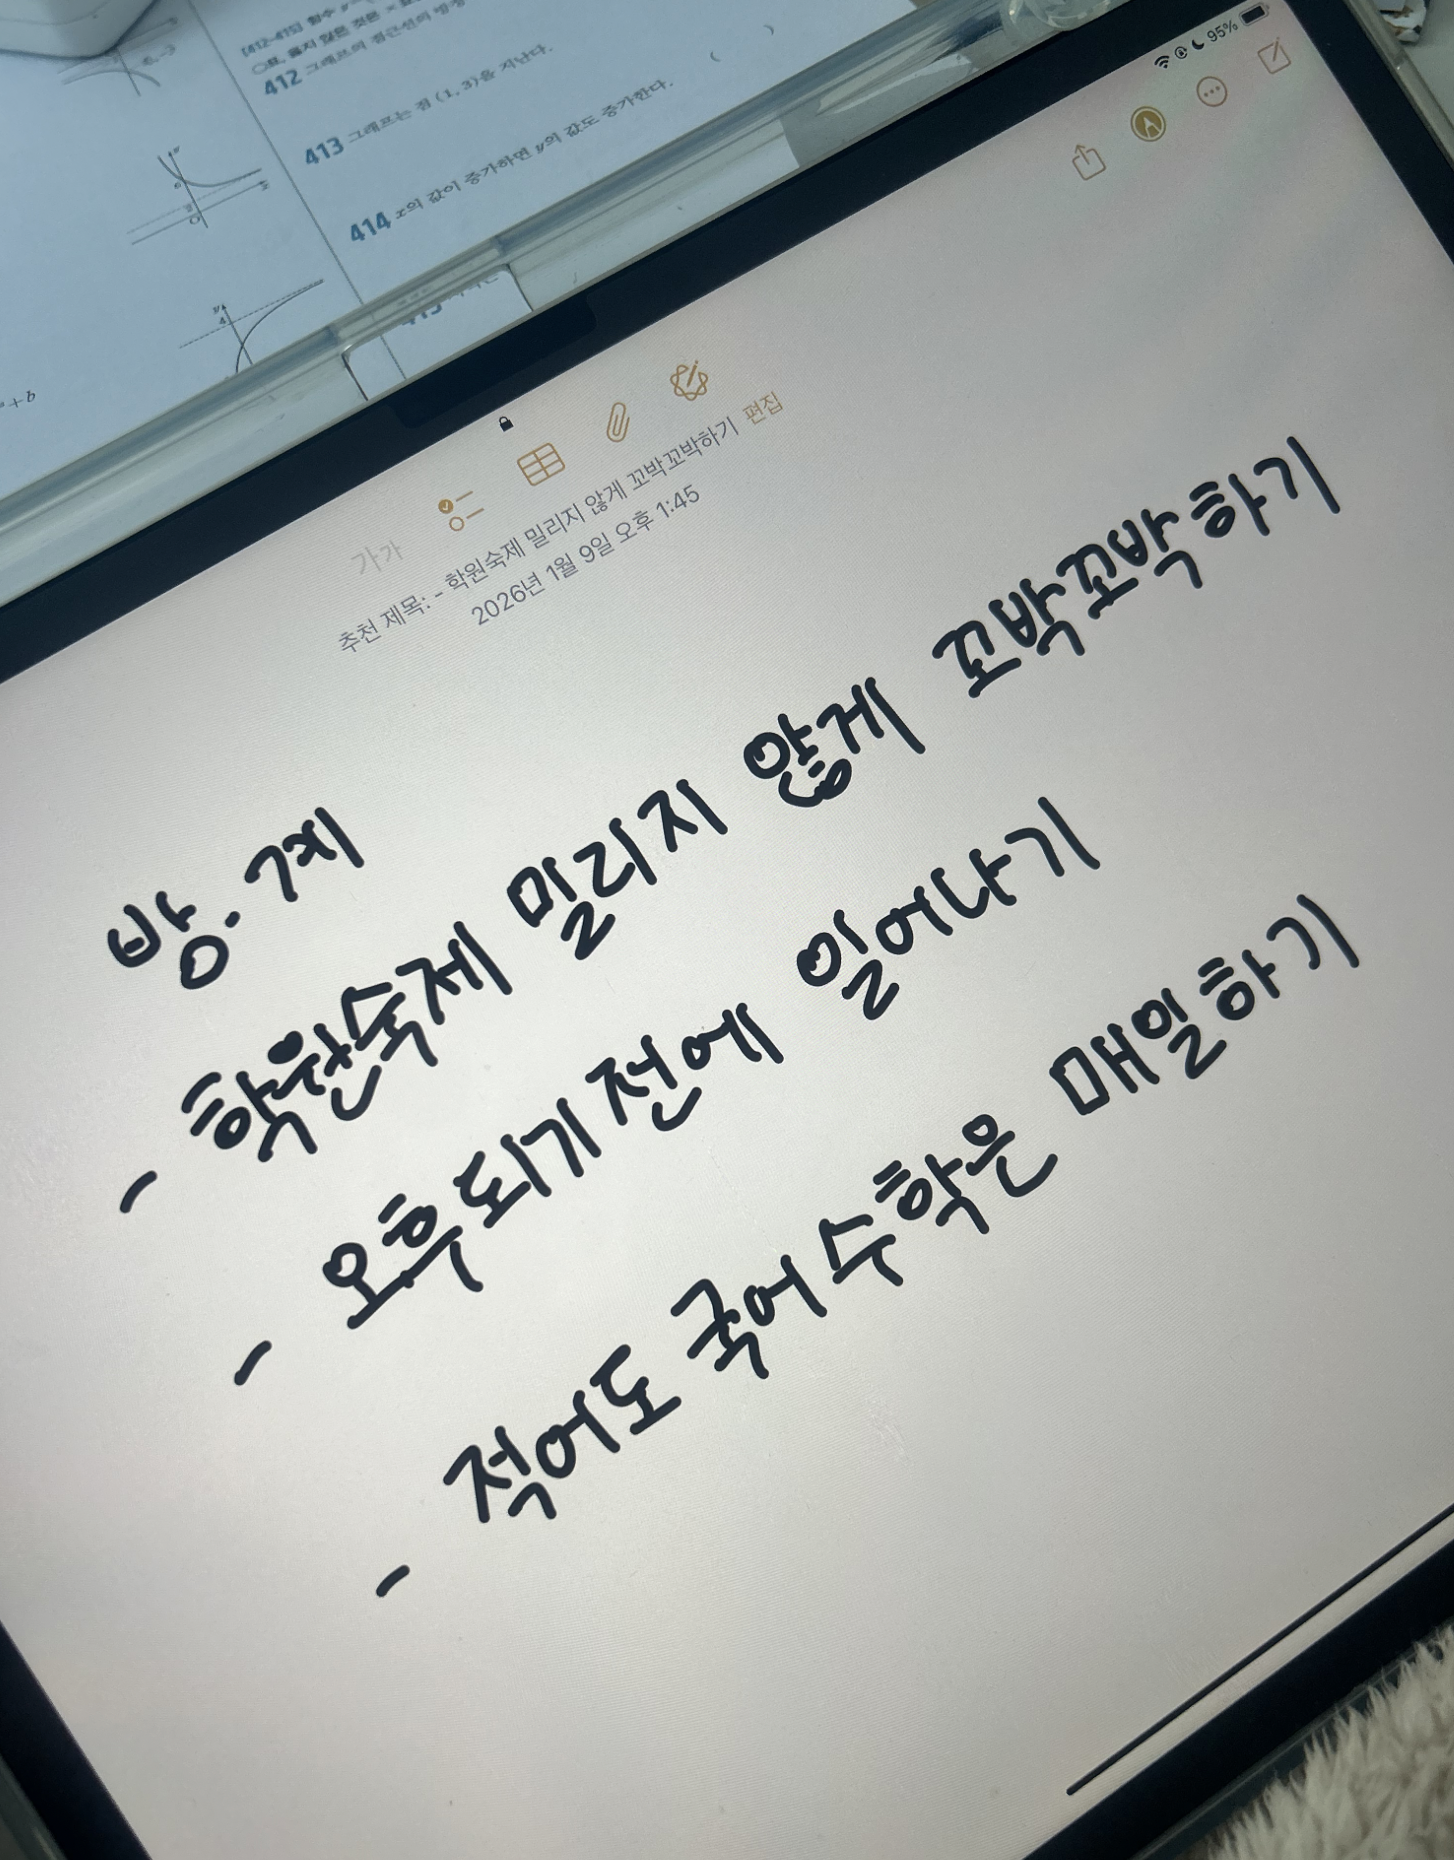 [412~415] 함수
옳지 않은 것은 ×표
412 그래프의 점근선의 방정
413 그래프는 점 (1, 3)을 지난다.
414 x의 값이 증가하면 y의 값도 증가한다. ( )
95%
가가
추천 제목: - 학원숙제 밀리지 않게 꼬박꼬박하기 편집
2026년 1월 9일 오후 1:45
방.계
- 학원숙제 밀리지 않게 꼬박꼬박하기
- 오후되기 전에 일어나기
- 적어도 국어 수학은 매일하기